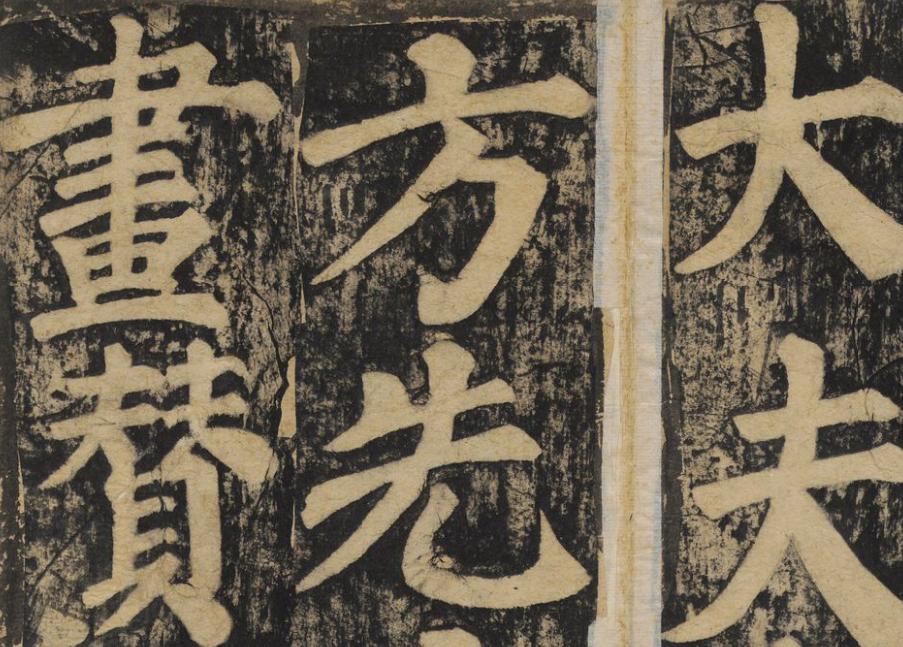 大夫
方先
畫賛